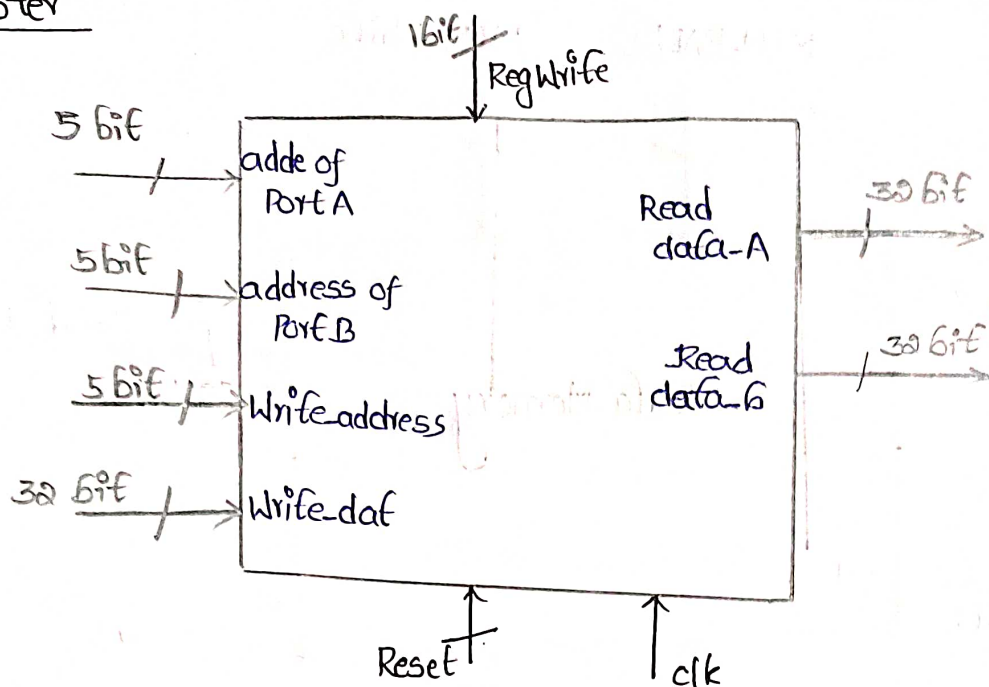 1bit
RegWrite
5 bit
adde of
Port A
5bit
address of
Port B
5 bit
Write_address
32 bit
Write_dat
Read
data-A
32 bit
Read
data_b
32 bit
Reset
clk